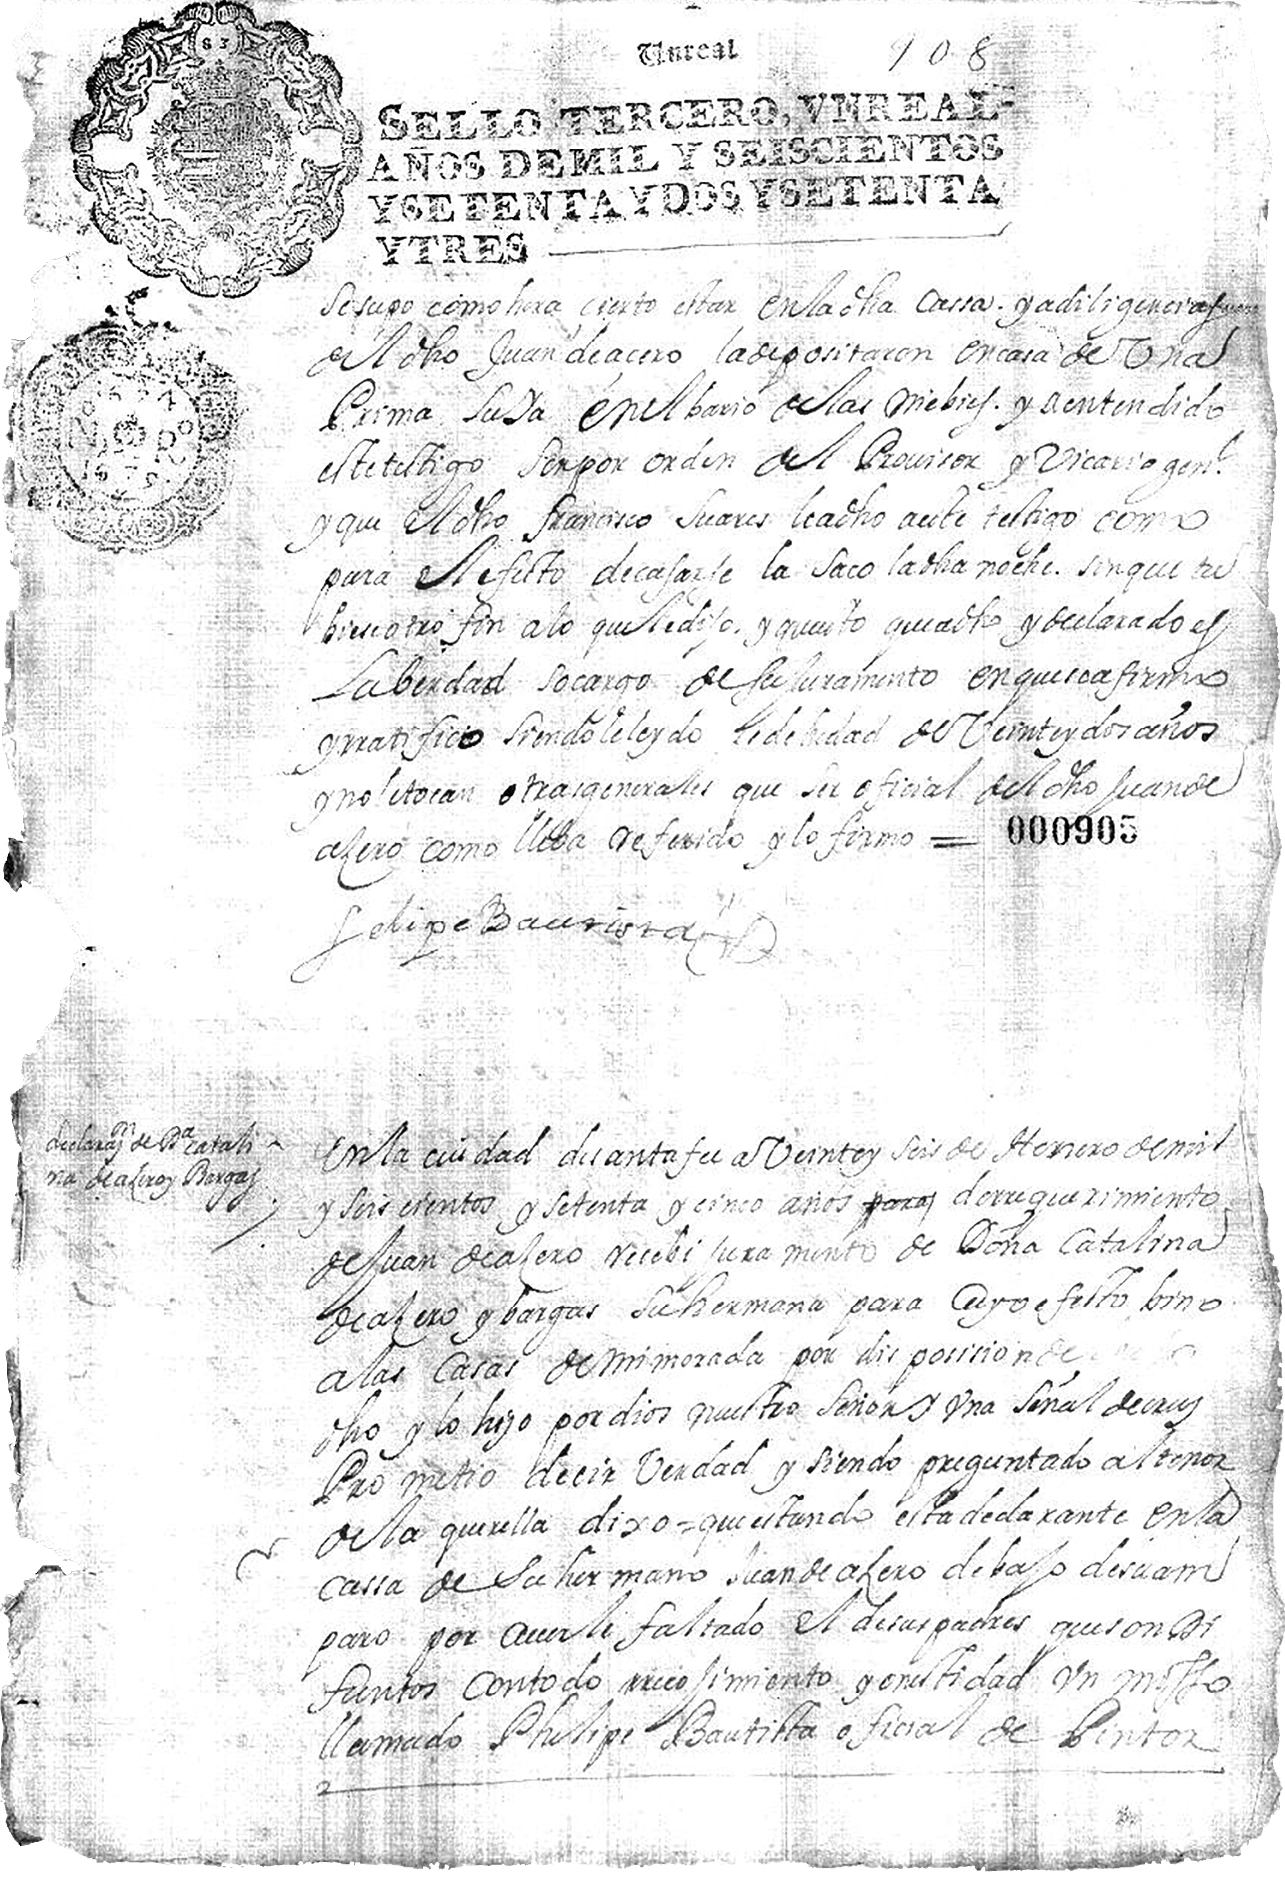 Unreal
908
SELLO TERCERO, VN REAL
AÑOS DE MIL Y SEISCIENTOS
Y SETENTA Y DOS Y SETENTA
Y TRES
se supo como hera cierto estar en la dha cassa. y a diligencias
del dho Juan de acero la depositaron en casa de Vna
Prima suya en el bario de las niebies. y a entendido
este testigo ser por orden del Provisor y Vicario genl.
y que el dho francisco suares le a dho a este testigo como
para el efeto de casarse la saco la dha noche. sin que tu
biese otro fin a lo que le dijo. y questo que a dho y declarado es
La berdad so cargo de su juramento en que se afirmo
y rratifico siendole leydo es de hedad de Veinte y dos años
y no le tocan otras generales que ser oficial del dho Juan de
azero como lleba referido y lo firmo =
000905
Felipe Bautista
declaraon de Da catali
na de azero y Bargas
En la ciudad de santa fee a Veinte y seis de Henero de mil
y seis cientos y setenta y cinco años para de rrequerimiento
de Juan de azero recebi juramento de Doña Catalina
de azero y bargas su hermana para cuyo efeto bino
a las casas de mi morada por disposision de
dho y lo hizo por dios nuestro señor y Vna señal de cruz
Prometio decir Verdad y siendo preguntado al tenor
de la querella dixo = que estando esta declarante en la
cassa de su hermano Juan de azero debajo de su am
paro por averle faltado el de sus padres que son di
funtos con todo rrecojimiento y onestidad Vn mosso
llamado Phelipe Bautista oficial de Pintor